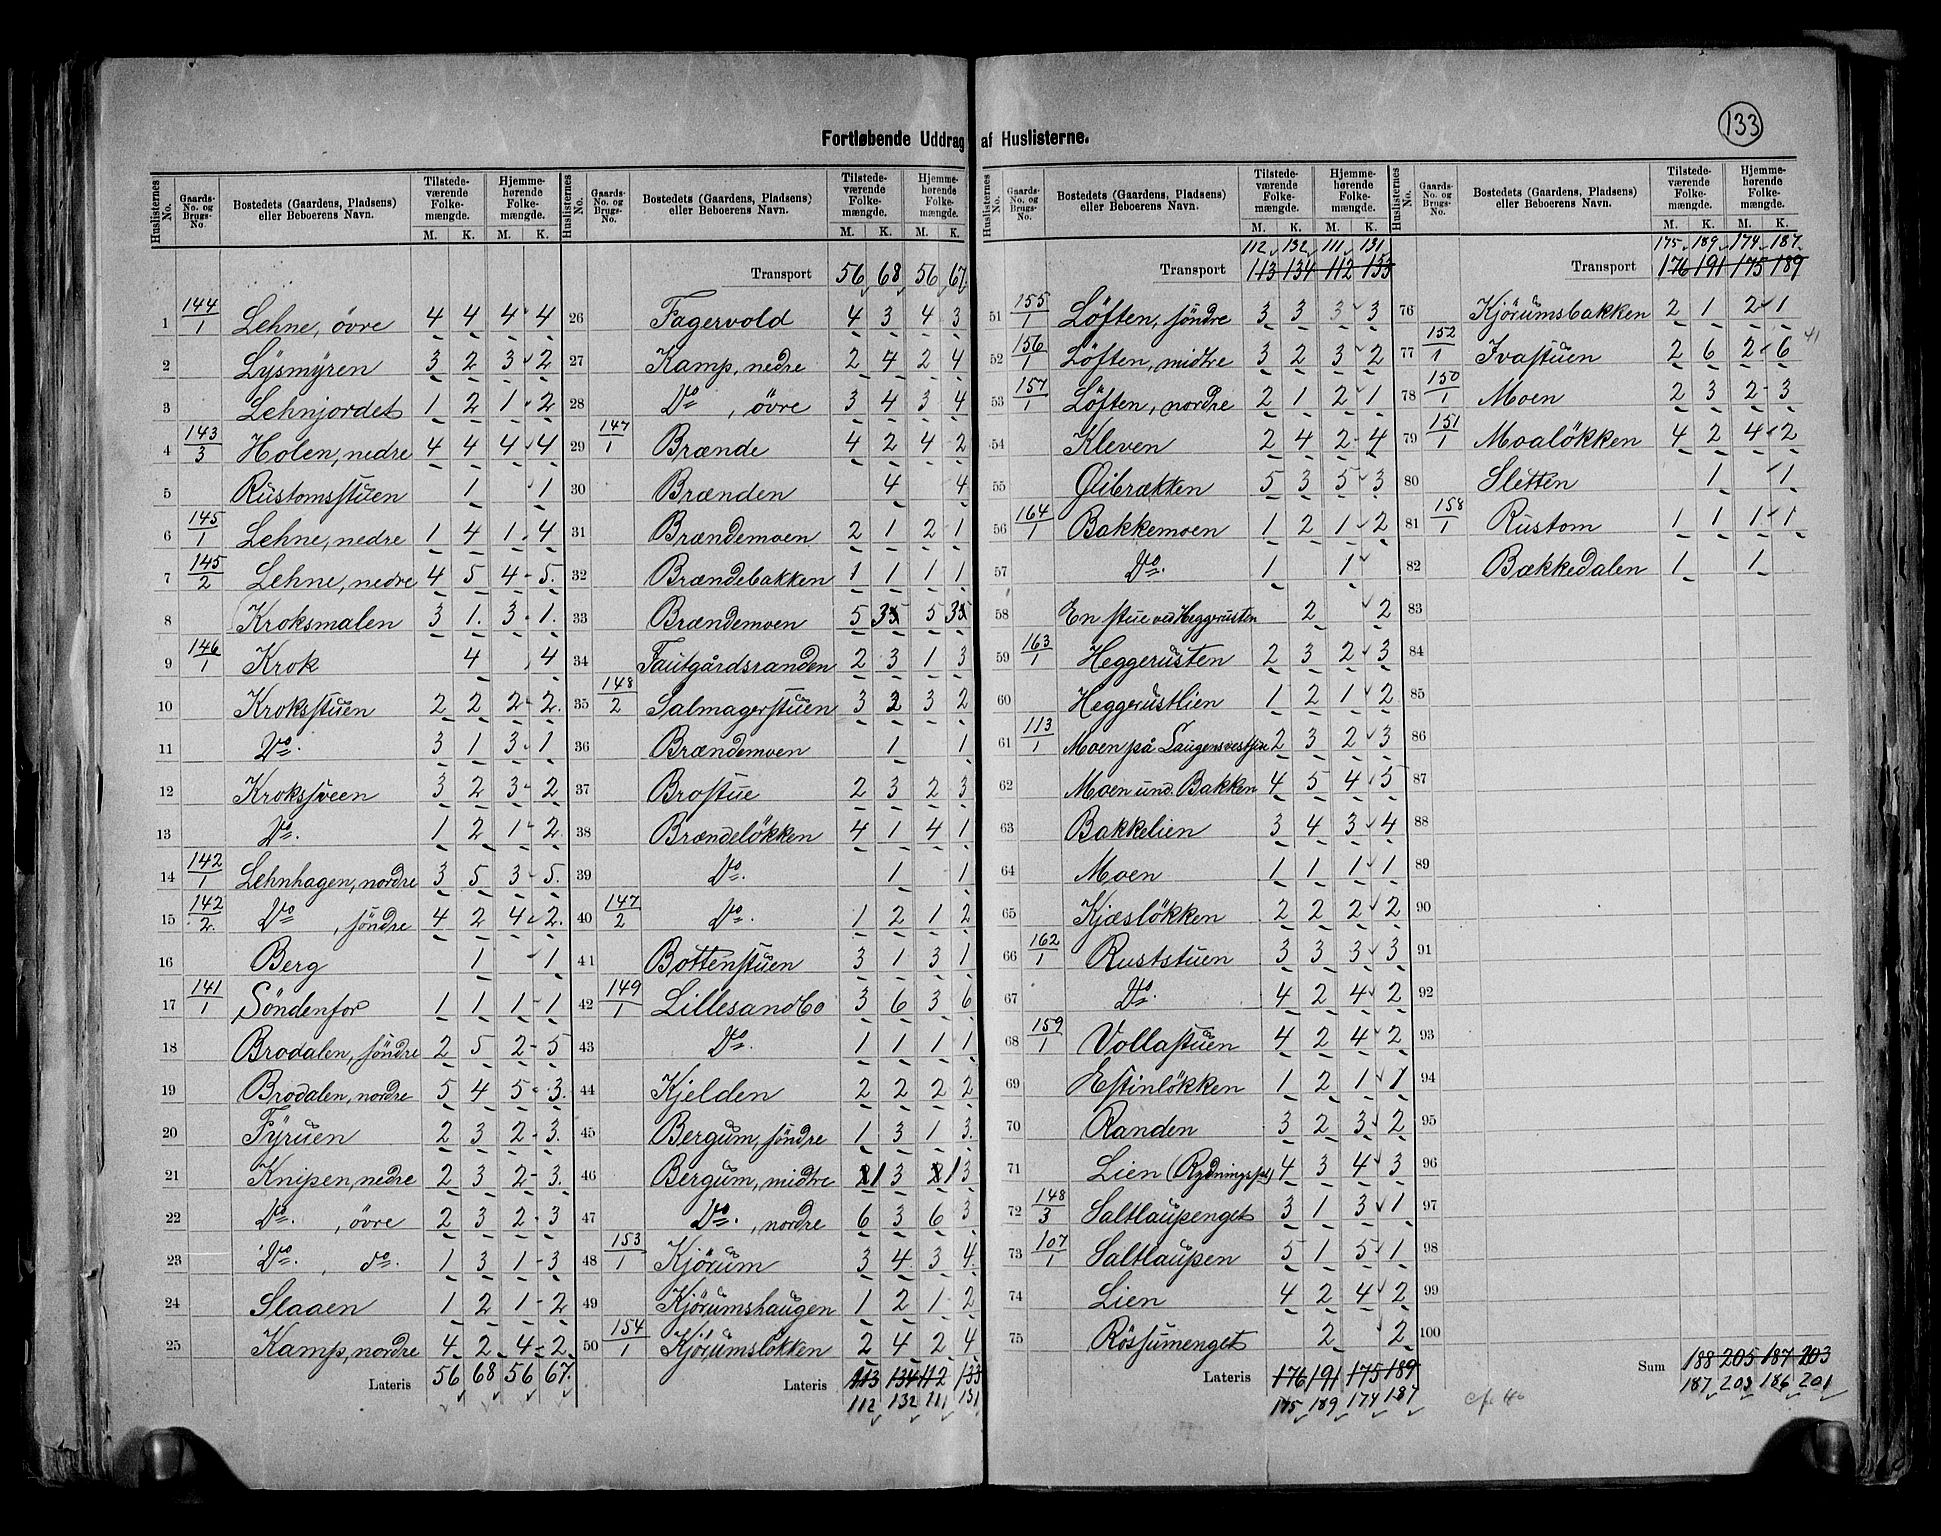 133
Fortløbende Uddrag af Huslisterne.
Huslisternes No. Gaards-No. og Brugs-No. Bostedets (Gaardens, Pladsens) eller Beboerens Navn. Tilstedeværende Folkemængde. M. K. Hjemmehørende Folkemængde. M. K.
1 144/1 Lehne, övre 4 4 4 4
2 Lysmyren 3 2 3 2
3 Lehnjordet 1 2 1 2
4 143/3 Holen, nedre 4 4 4 4
5 Rustomsstuen 1 1
6 145/1 Lehne, nedre 1 4 1 4
7 145/2 Lehne, nedre 4 5 4 5.
8 Kroksmalen 3 1. 3 1.
9 146/1 Krok 4 4
10 Kroksstuen 2 2 2 2.
11 Do. 3 1 3 1
12 Kroksveen 3 2 3 2
13 Do. 1 2 1 2.
14 142/1 Lehnhagen, nordre 3 5 3 5.
15 142/2. Do , söndre 4 2 4 2.
16 Berg 1 1
17 141/1 Söndenfor 1 1 1 1
18 Brodalen, söndre 2 5 2 5
19 Brodalen, nordre 5 4 5 3.
20 Fyruen 2 3 2 3.
21 Knipen, nedre 2 3 2 3.
22 Do. , övre 2 3 2 3
23 Do. , do. 1 3 1 3
24 Slaaen 1 2 1 2
25 Kamp, nordre 4 2 4 2.
Lateris 56 68 56 67.
Huslisternes No. Gaards-No. og Brugs-No. Bostedets (Gaardens, Pladsens) eller Beboerens Navn. Tilstedeværende Folkemængde. M. K. Hjemmehørende Folkemængde. M. K.
Transport 56 68 56 67.
26 Fagervold 4 3 4 3
27 Kamp, nedre 2 4 2 4
28 Do , övre 3 4 3 4
29 147/1 Brænde 4 2 4 2
30 Brænden 4 4
31 Brændemoen 2 1 2 1
32 Brændebakken 1 1 1 1
33 Brændemoen 5 3 5 3
34 Tautgårdsranden 2 3 1 3
35 148/2 Salmagerstuen 3 2 3 2
36 Brændemoen 1 1
37 Brostue 2 3 2 3
38 Brændelökken 4 1 4 1
39 Do. 1 1
40 147/2 Do. 1 2 1 2
41 Bottenstuen 3 1 3 1
42 149/1 Lillesandbo 3 6 3 6
43 Do. 1 1 1 1
44 Kjelden 2 2 2 2
45 Bergum, söndre 1 3 1 3.
46 Bergum, midtre 1 3 1 3
47 Do. , nordre 6 3 6 3
48 153/1 Kjörum 3 4 3 4.
49 Kjörumshaugen 1 2 1 2
50 154/1 Kjörumslökken 2 4 2 4
Lateris 113 134 112 133
112 132 111 131
Huslisternes No. Gaards-No. og Brugs-No. Bostedets (Gaardens, Pladsens) eller Beboerens Navn. Tilstedeværende Folkemængde. M. K. Hjemmehørende Folkemængde. M. K.
112 132 111 131
Transport 113 134 112 133
51 155/1 Löften, söndre 3 3 3 3
52 156/1 Löften, midtre 3 2 3 2
53 157/1 Löften, nordre 2 1 2 1
54 Kleven 2 4 2 4
55 Öibrækken 5 3 5 3
56 164/1 Bakkemoen 1 2 1 2
57 Do. 1 1
58 En stue ved Heggerusten 2 2
59 163/1 Heggerusten 2 3 2 3
60 Heggerustlien 1 2 1 2
61 113/1 Moen på Laugensvestsin 2 3 2 3
62 Moen und. Bakken 4 5 4 5
63 Bakkelien 3 4 3 4
64 Moen 1 1 1 1
65 Kjæslökken 2 2 2 2
66 162/1 Ruststuen 3 3 3 3
67 Do. 4 2 4 2
68 159/1 Vollastuen 4 2 4 2
69 Estinlökken 1 2 1 1
70 Randen 3 2 3 2
71 Lien (Rydningspl) 4 3 4 3
72 148/3 Saltlaupenget 3 1 3 1
73 107/1 Saltlaupen 5 1 5 1
74 Lien 4 2 4 2
75 Rössumenget 2 2
Lateris 176 191 175 189
175 189 174 187
Huslisternes No. Gaards-No. og Brugs-No. Bostedets (Gaardens, Pladsens) eller Beboerens Navn. Tilstedeværende Folkemængde. M. K. Hjemmehørende Folkemængde. M. K.
175 189 174 187
Transport 176 191 175 189
76 Kjörumsbakken 2 1 2 1
77 152/1 Ivastuen 2 6 2 6 41
78 150/1 Moen 2 3 2 3
79 151/1 Moalökken 4 2 4 2
80 Sletten 1 1
81 158/1 Rustom 1 1 1 1
82 Bækkedalen 1 1
83
84
85
86
87
88
89
90
91
92
93
94
95
96
97
98
99
100
Sum 188 205 187 203
187 203 186 201